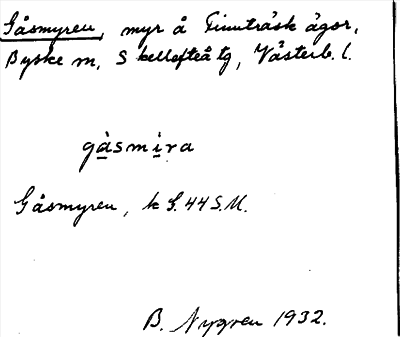 Gåsmyren, myr å Finnträsk ägor,
Byske sn, Skellefteå tg, Västerb. l.
gàsmira
Gåsmyren, k G. 44 S.M.
B. Nygren 1932.